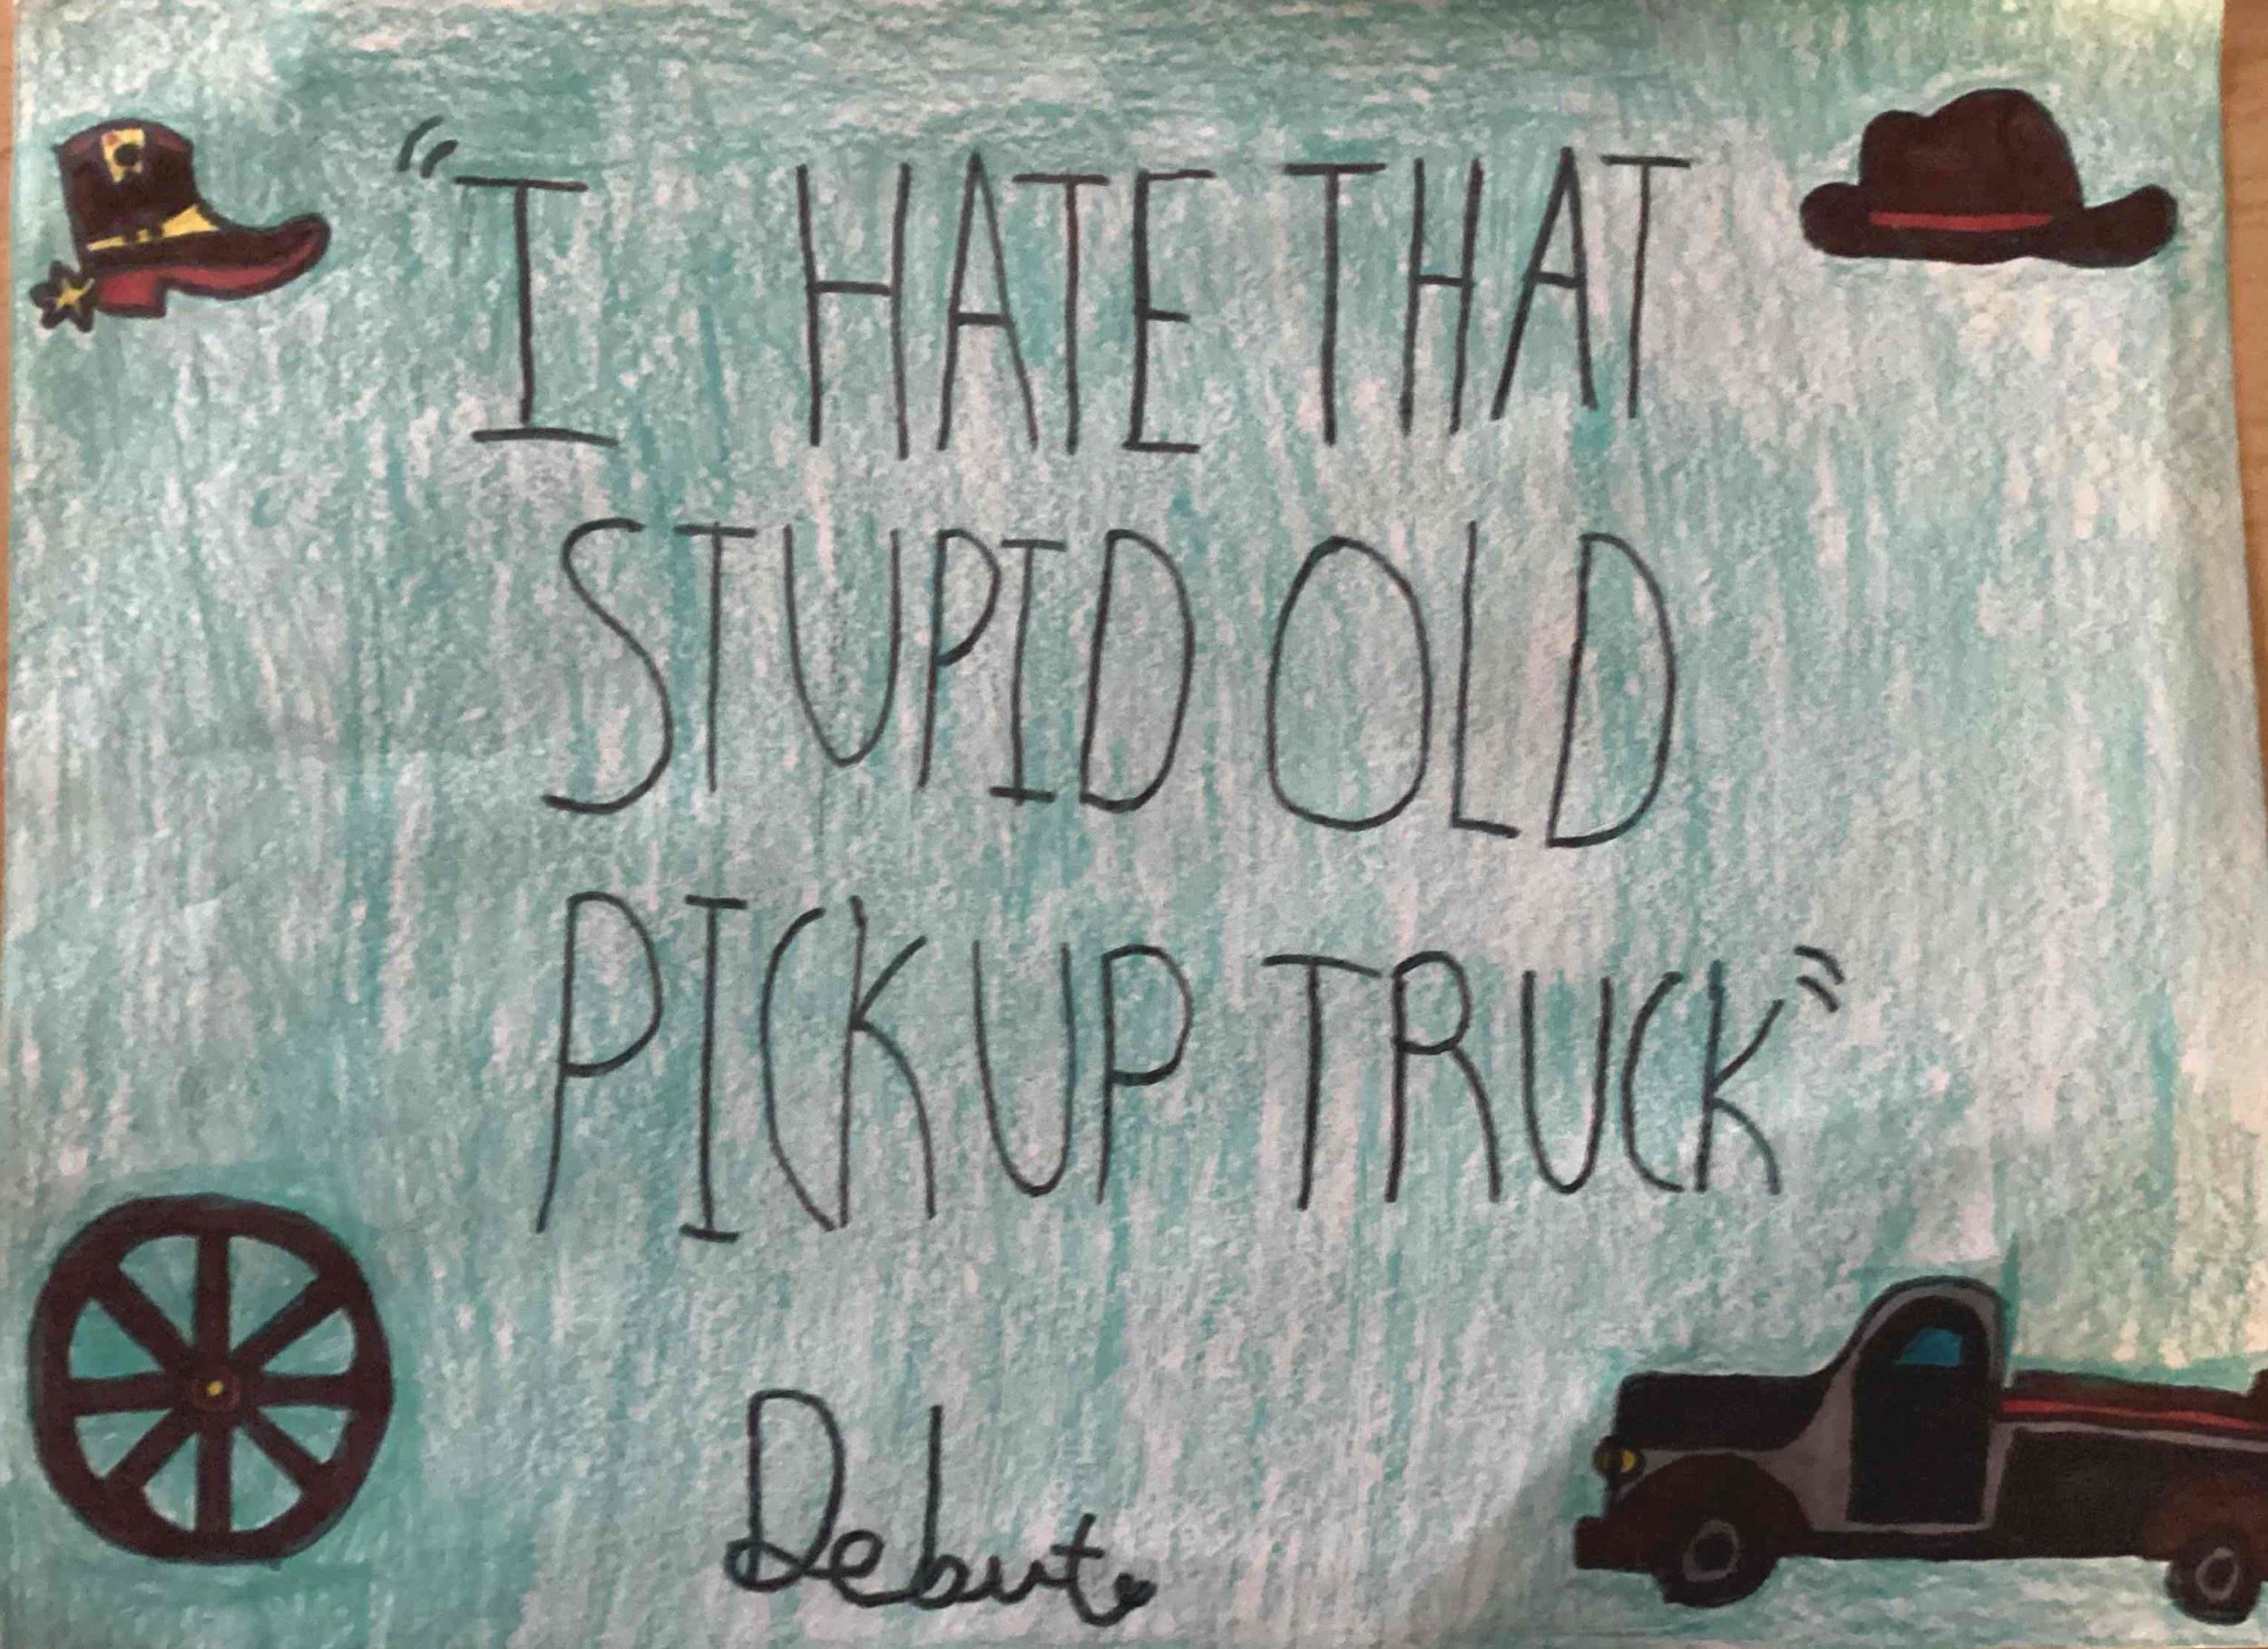 "I HATE THAT
STUPID OLD
PICKUP TRUCK"
Debut